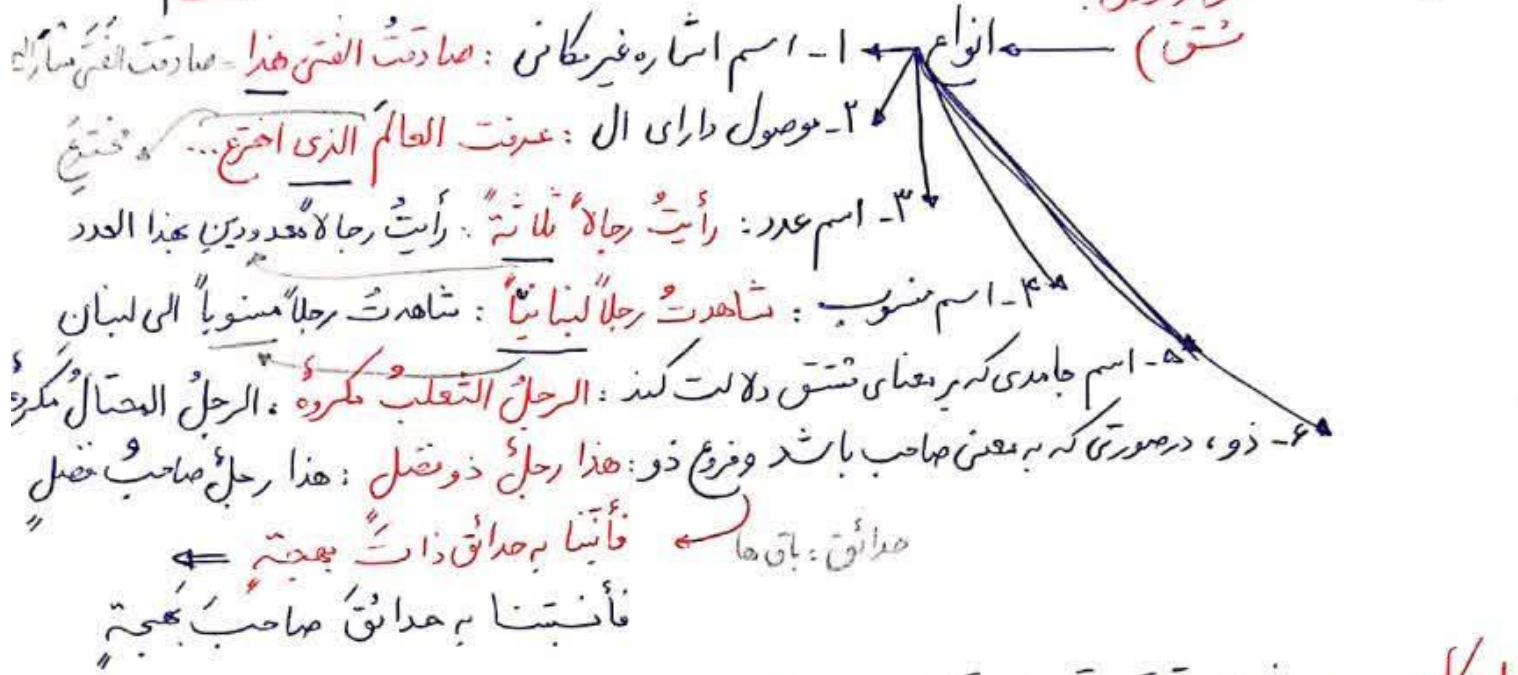 مشتق) انواع ۱- اسم اشاره غیرمکانی : صادقتُ الفتی هذا - صادقت الفتی
۲- موصول دارای ال : عرفت العالمَ الذی اخترع... مخترعَ
۳- اسم عدد : رأیتُ رجالاً ثلاثةً : رأیتُ رجالاً معدودینِ بهذا العدد
۴- اسم منسوب : شاهدتُ رجلاً لبنانیّاً : شاهدتُ رجلاً منسوباً الی لبنانِ
۵- اسم جامدی که بر معنای مشتق دلالت کند : الرجلُ الثعلبُ مکروهٌ ، الرجلُ المحتالُ مکروهٌ
۶- ذو ، درصورتی که به معنی صاحب باشد وفروع ذو : هذا رجلٌ ذو فضل : هذا رجلٌ صاحبُ فضلٍ
حدائق : باق ها فأنبتنا به حدائق ذاتَ بهجةٍ
فأنبتنا به حدائقَ صاحبَ بهجةٍ